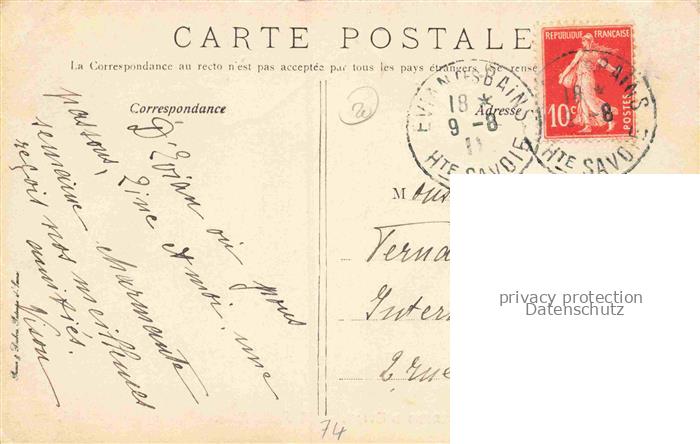 CARTE POSTALE
La Correspondance au recto n'est pas acceptée par tous les pays étrangers. Se rense
Correspondance
Adresse
20
REPUBLIQUE FRANÇAISE
10c
POSTES
EVIAN-LES-BAINS
18 *
9 -8
11
Hte SAVOIE
BAINS
18 *
-8
Hte SAVOIE
D'Evian où nous
passons, Line et moi, une
semaine charmante
reçois nos meilleures
amitiés.
M ons
Ferna
Inter
2 rue
privacy protection
Datenschutz
74